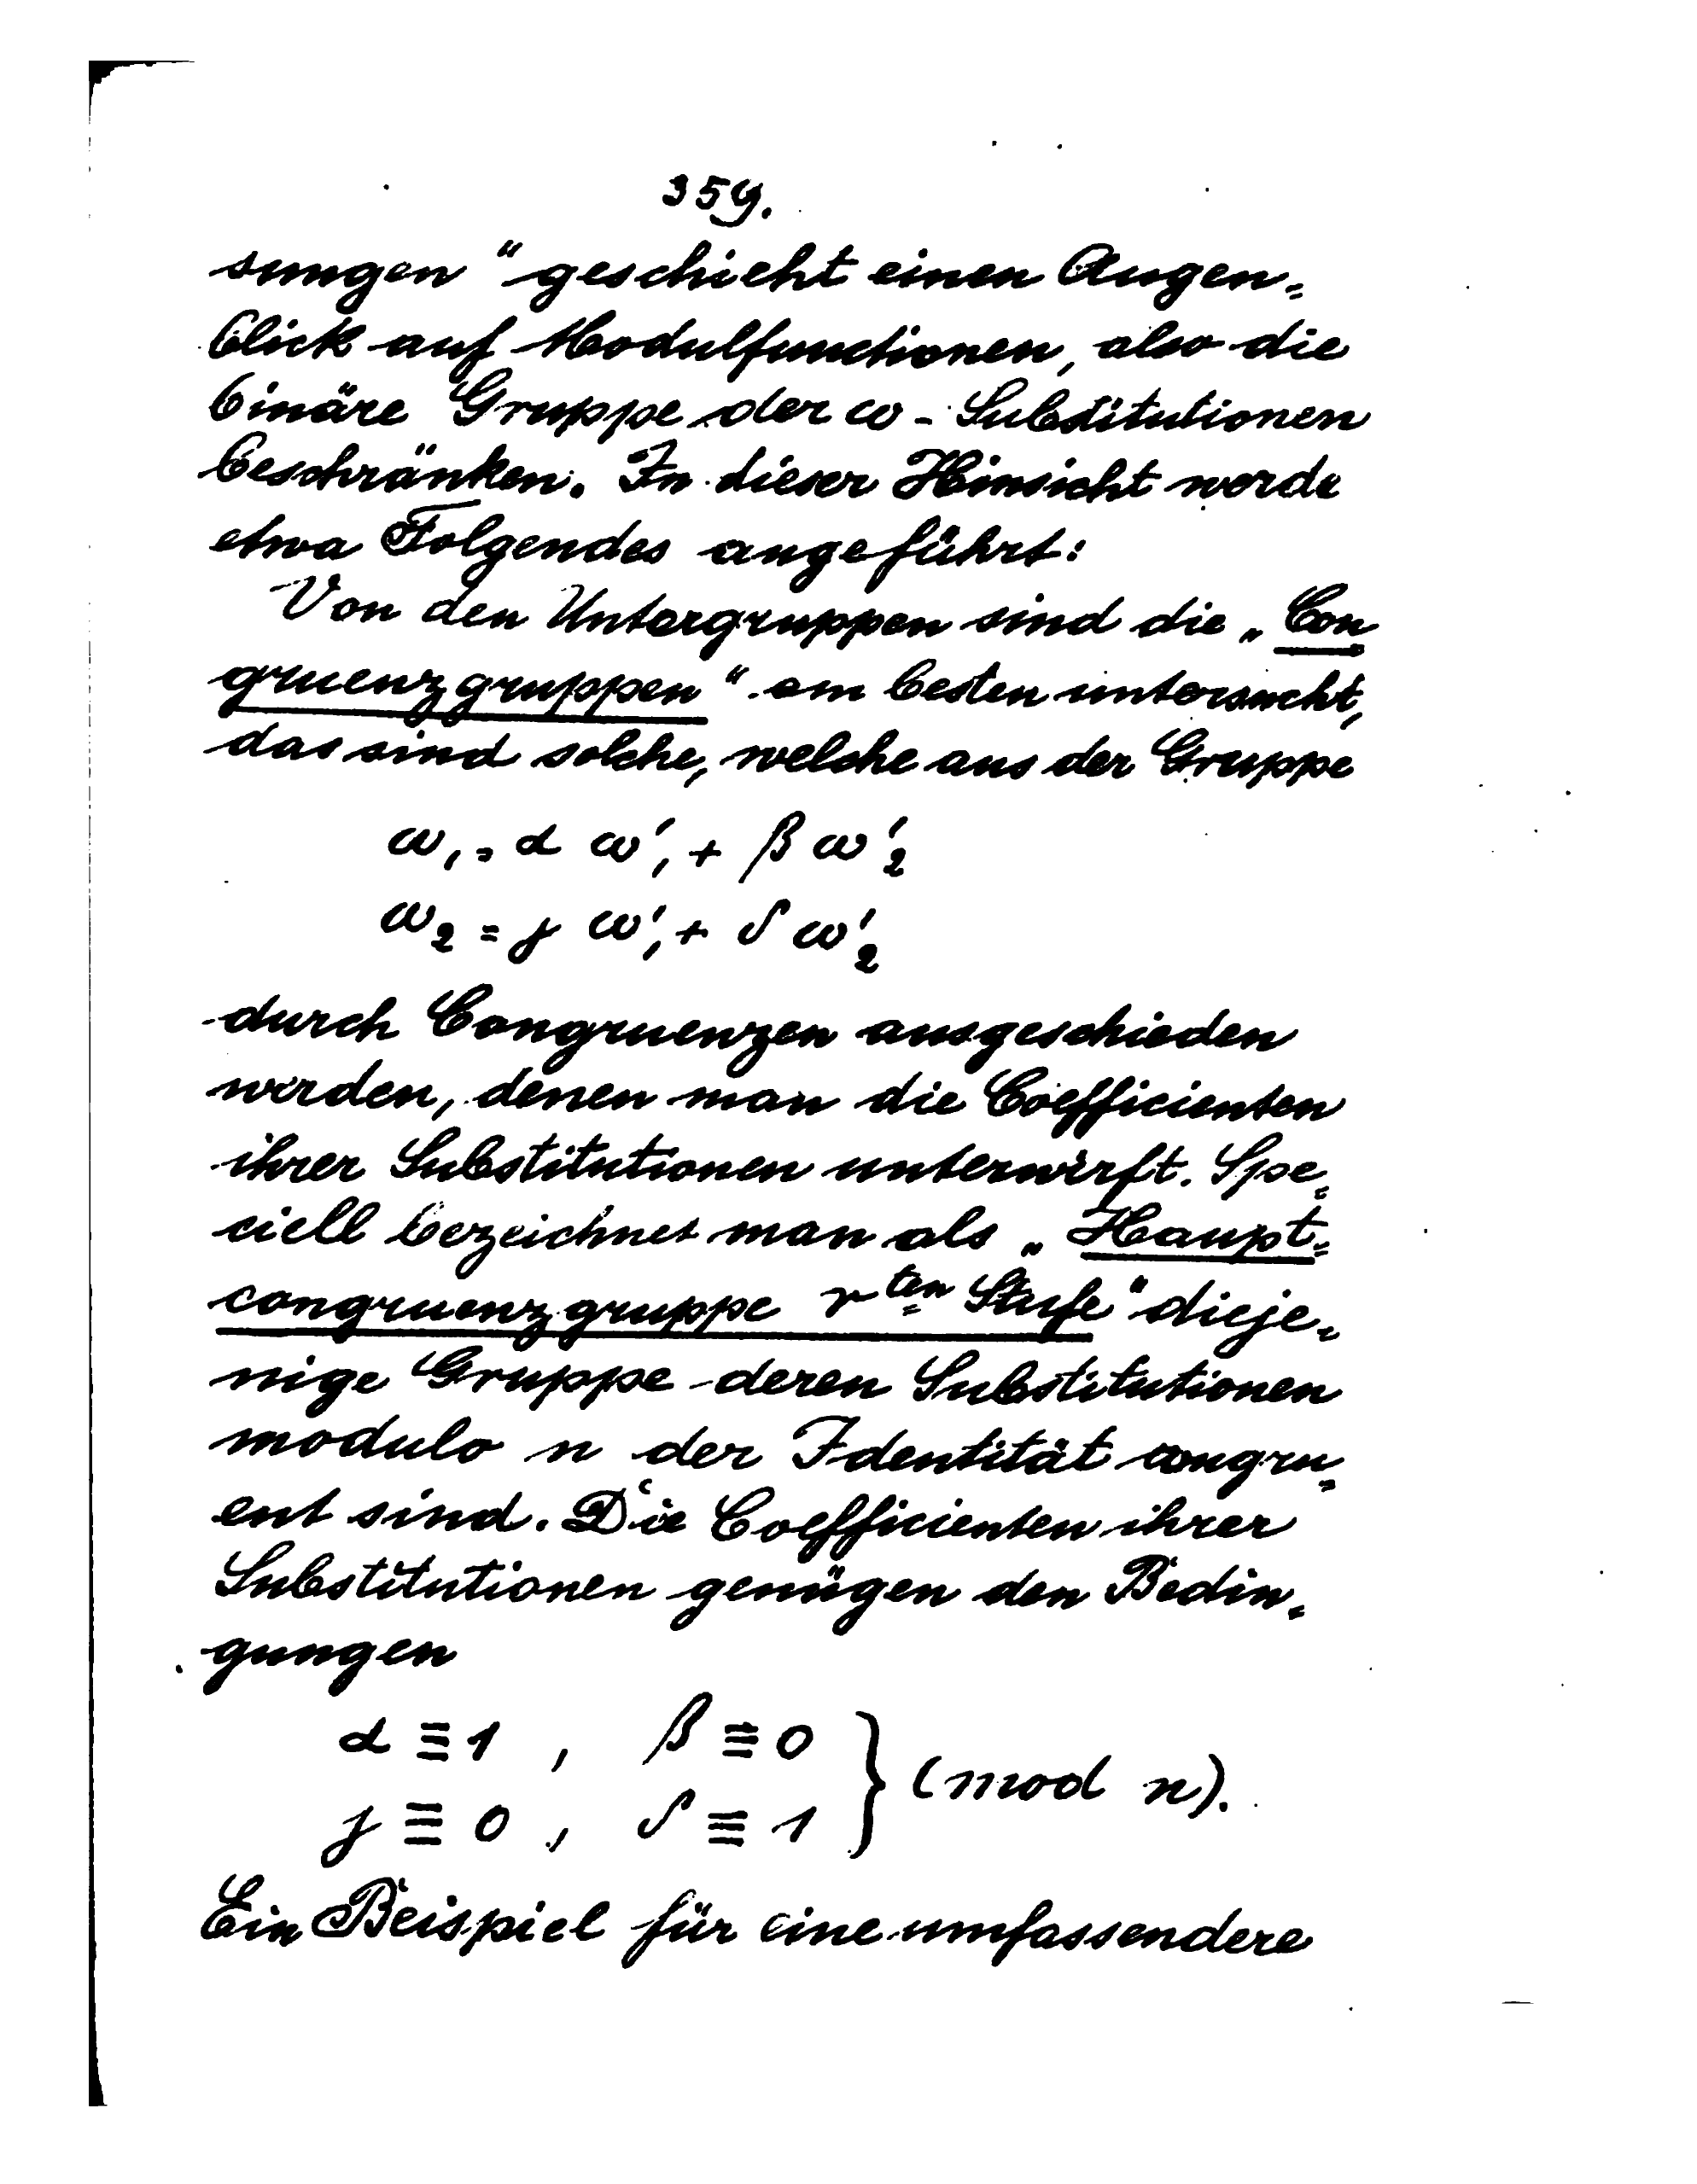 359.
sungen“ geschieht einen Augen=
blick auf Modulfunctionen, also die
binäre Gruppe der ω-Substitutionen
beschränken. In dieser Hinsicht werde
etwa Folgendes angeführt:
Von den Untergruppen sind die „Con
gruenzgruppen“ am besten untersucht,
das sind solche, welche aus der Gruppe
ω₁ = α ω′₁ + β ω′₂
ω₂ = γ ω′₁ + δ ω′₂
durch Congruenzen ausgeschieden
werden, denen man die Coefficienten
ihrer Substitutionen unterwirft. Spe=
ciell bezeichnet man als „Haupt=
congruenzgruppe nten Stufe“ dieje=
nige Gruppe deren Substitutionen
modulo n der Identität congru=
ent sind. Die Coefficienten ihrer
Substitutionen genügen den Bedin=
gungen
α ≡ 1 , β ≡ 0
γ ≡ 0 , δ ≡ 1 } (mod n).
Ein Beispiel für eine umfassendere